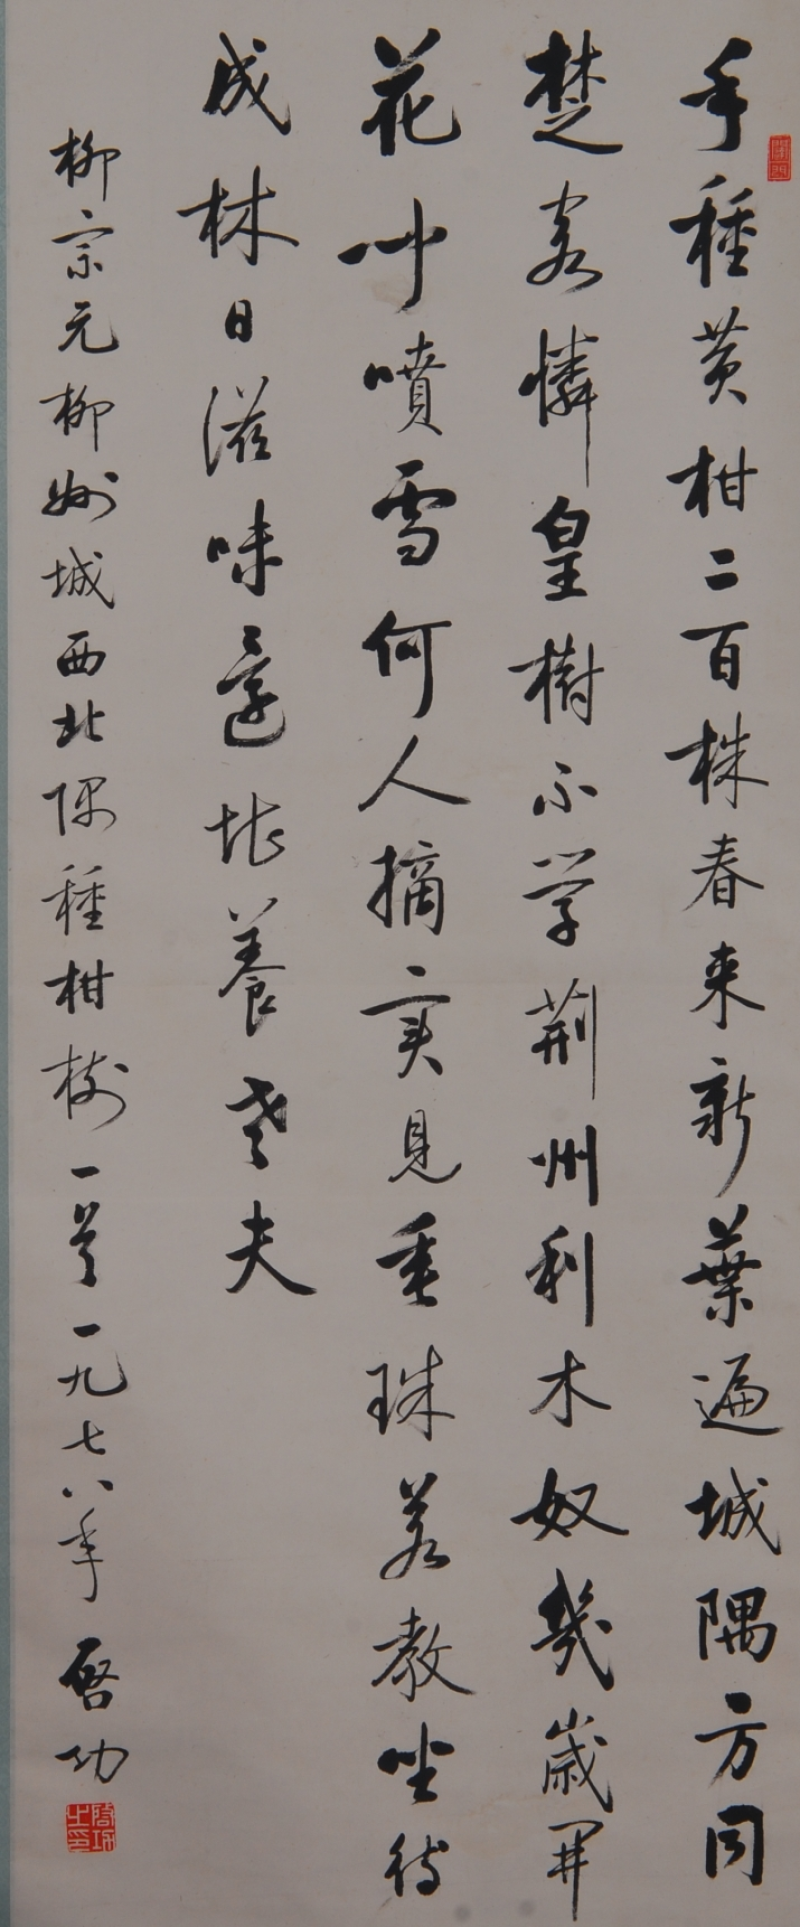 手種黄柑二百株春来新葉遍城隅方同
楚客憐皇樹不学荆州利木奴幾歲開
花叶噴雪何人摘实見垂珠若教坐待
成林日滋味還堪養老夫
柳宗元柳州城西北隅種柑樹一首一九七八年启功
启功之印